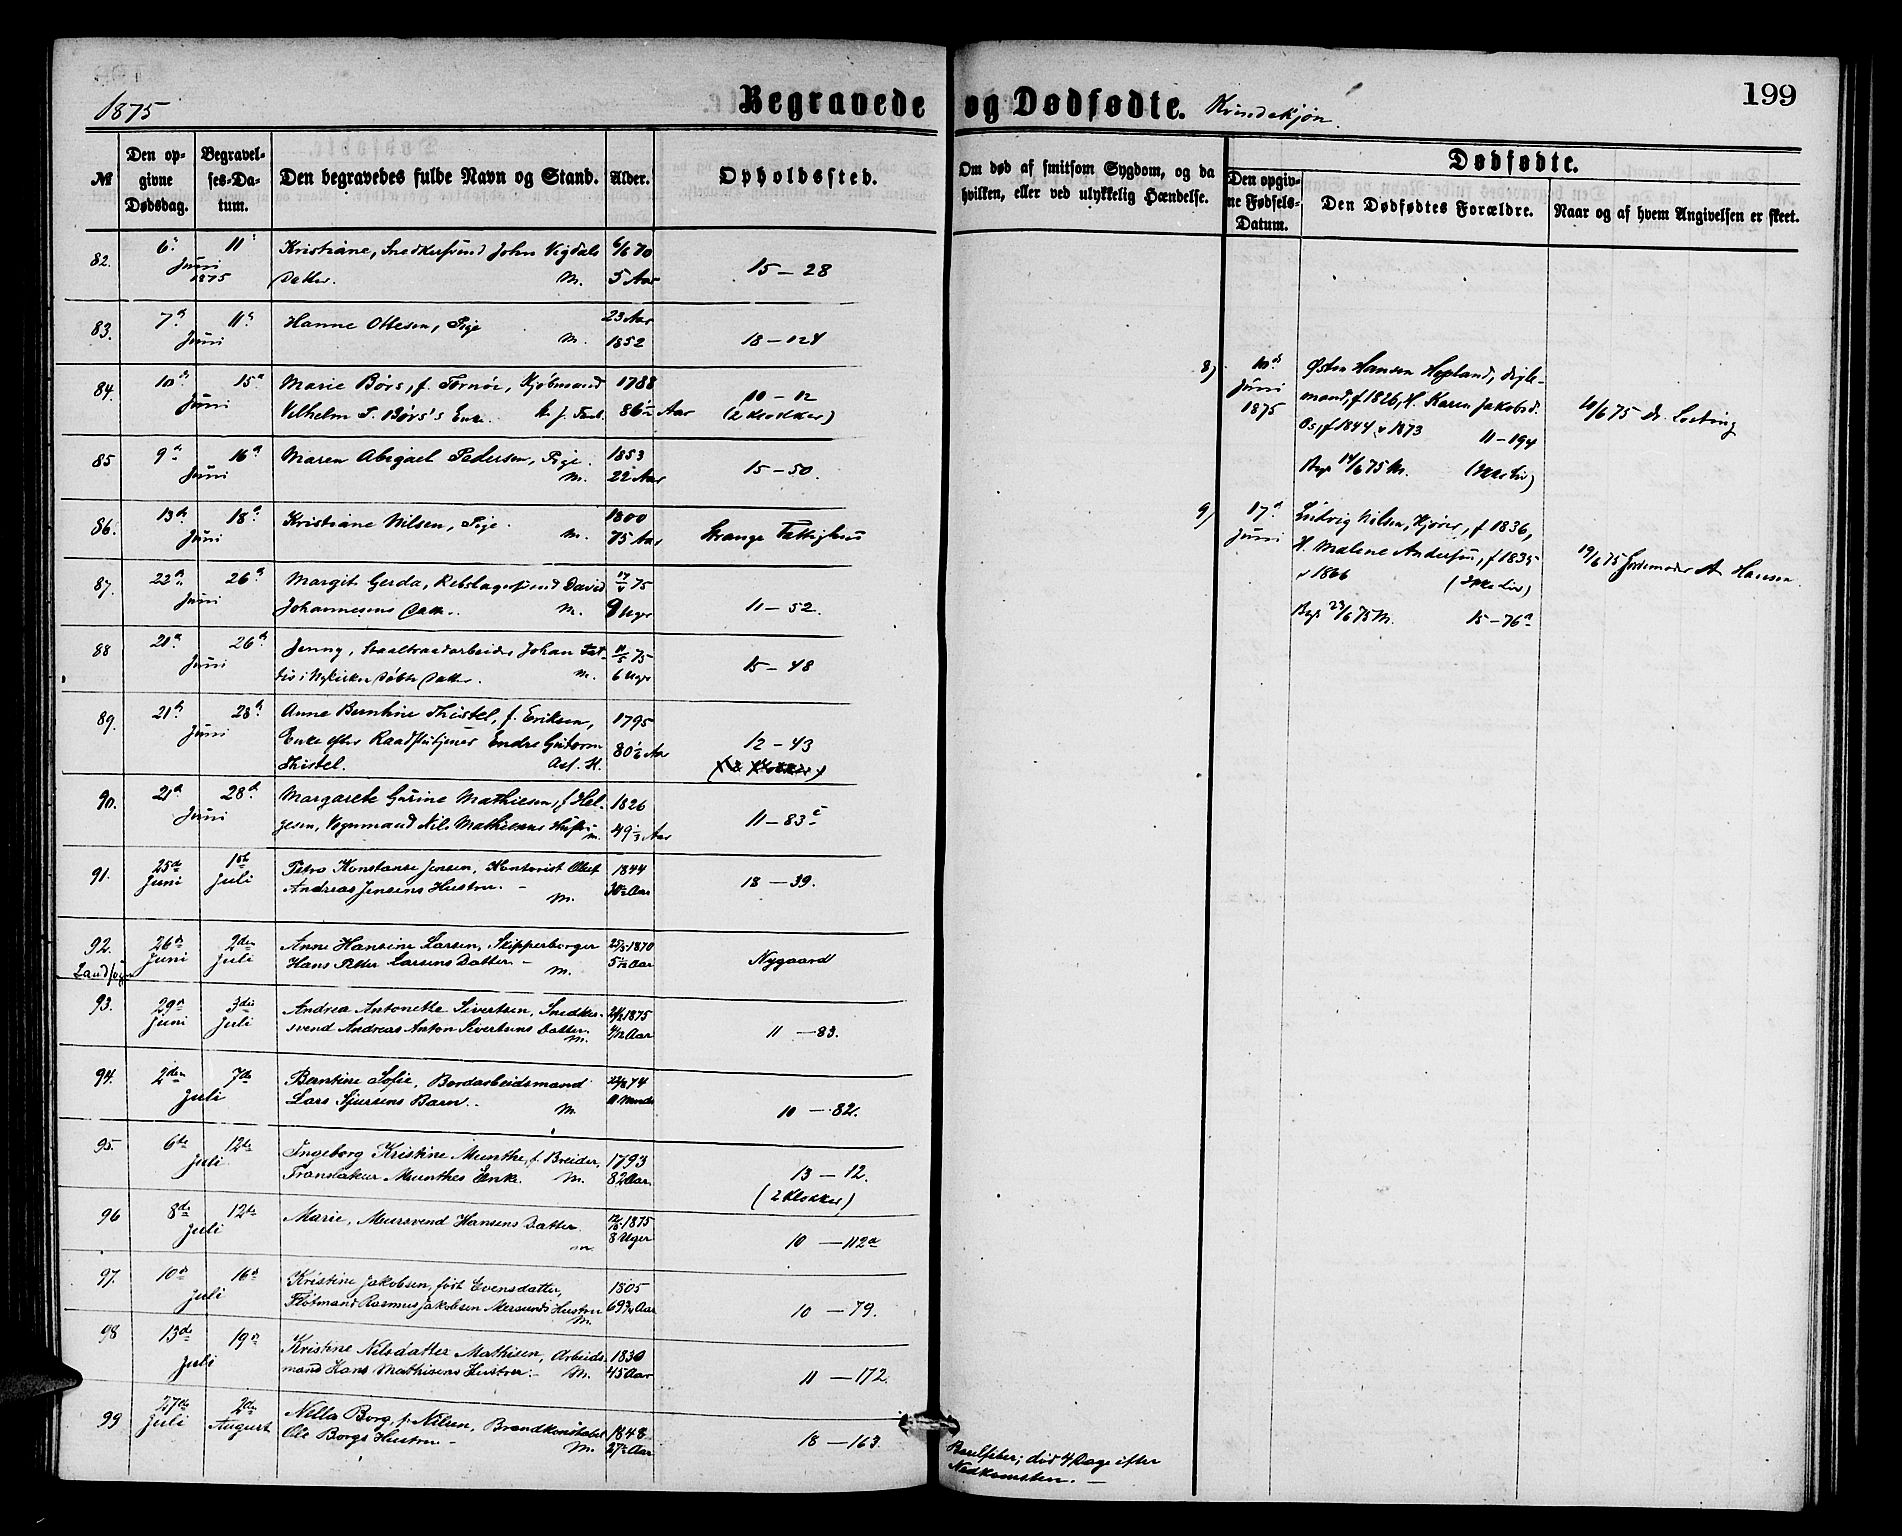 1875
Begravede og Dødfødte. Kvindekjøn.
199
№
Den opgivne Dødsdag.
Begravelses-Datum.
Den begravedes fulde Navn og Stand.
Alder.
Opholdssted.
Om død af smitsom Sygdom, og da hvilken, eller ved ulykkelig Hændelse.
Dødfødte.
Den opgivne Fødsels-Datum.
Den Dødfødtes Forældre.
Naar og af hvem Angivelsen er skeet.
82. 6. 11. Kristiane, Snedkersvend John Vigdals 6/6 70
Juni 1875 Datter. M. 5 Aar 15–28
83. 7de 11te Hanne Ottesen, Pige 23 Aar
Juni M. 1852 18–124
84. 10de 15de Marie Børs, f. Tornøe, Kjøbmand 1788
Juni Vilhelm Børs's Enke. 86½ Aar 10–12
(2 Klokker)
85 9de 16de Maren Abigael Pedersen, Pige. 1853
Juni M. 22 Aar 15–50.
86. 13de 18de Kristiane Nilsen, Pige. 1800
Juni M. 75 Aar Strange Fattighus
87. 22de 26de Margit Gerda, Rebslagersvend David 17/4 75
Juni Johannesens Datt. M. 9 Uger 11–52.
88 21de 26de Jenny, Staaltraadarbeider Johan 11/5 75
Juni i Nykirken døbte Datter. M. 6 Uger 15–48
89. 21de 28de Anne Berntine Thistel, f. Eriksen, 1795
Juni Enke efter Raadstutjener Endre Guttorm 80½ Aar 12–43
Thistel. Ass. K.
90. 21de 28de Margarete Gurine Mathiesen, f. Hel- 1826
Juni gesen, Vognmand Nils Mathiesens Hustru M. 49⅓ Aar 11–83c
91. 25de 1ste Petra Konstanse Jensen, Kontorist Oluf 1844
Juni Juli Andreas Jensens Hustru. – M. Aar 18–39.
92. 26de 2den Anne Hansine Larsen, Skipperborger 25/5 1870
Landsogn Juni Juli Hans Petter Larsens Datter. – M. 5 1/12 Aar Nygaard
93. 29de 3die Andrea Antonette Sivertsen, Snedker- 1875
Juni Juli svend Andreas Anton Sivertsens Datter. M. 4/12 Aar 11–83.
94. 2den 7de Bentine Sofie, Bordarbeidsmand 74
Juli Lars Sjursens Barn. M. 11 Mndr 10–82.
95. 6te 12te Ingeborg Kristine Munthe, f. Breider, 1793
Juli Translateur Munthes Enke. M. 82 Aar. 13–12.
(2 Klokker)
96 8de 12te Marie, Mursvend Hansens Datter 12/5 1875
Juli M. 8 Uger 10–112a
97. 10de 16de Kristine Jakobsen, født Evensdatter, 1805
Juli Fløtmand Rasmus Jakobsen Mersunds Hustru M. 69¾ Aar 10–79.
98 13de 19de Kristine Nilsdatter Mathisen, Arbeids- 1830
Juli mand Hans Mathisens Hustru. – M. 45 Aar 11–172.
99 27de 2den Nella Borg, f. Nilsen, Brandkonstabel 1848
Juli August Ole Borgs Hustru – M. 27½ Aar 18–163.
Barselfeber; død 4 Dage efter
Nedkomsten. –
8) 10de Østen Hansen Hopland, Sigle-
Juni mand, f. 1826, H. Karen Jakobsd.
1875 Os, f. 1844, v. 1873 11–194
Begr. 14/6 75 M.
10/6 75 Dr. Lorting
9) 17de Ludvig Nilsen, Kjører, f. 1836,
Juni H. Malene Andersen, f. 1835
v 1866
Begr. 23/6 75 M. 15–76a
19/6 75 Jordemoder A. Hansen.